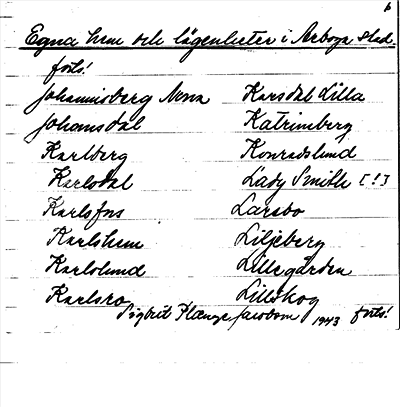 6
Egna hem och lägenheter i Arboga stad.
forts!
Johannisberg Norra Karsdal Lilla
Johansdal Katrineberg
Karlberg Konradslund
Karlsdal Lady Smith [!]
Karlsfors Larsbo
Karlshem Liljeberg
Karlslund Lillegården
Karlsro Lillskog
Sigbrit Plænge Jacobson 1943 forts!